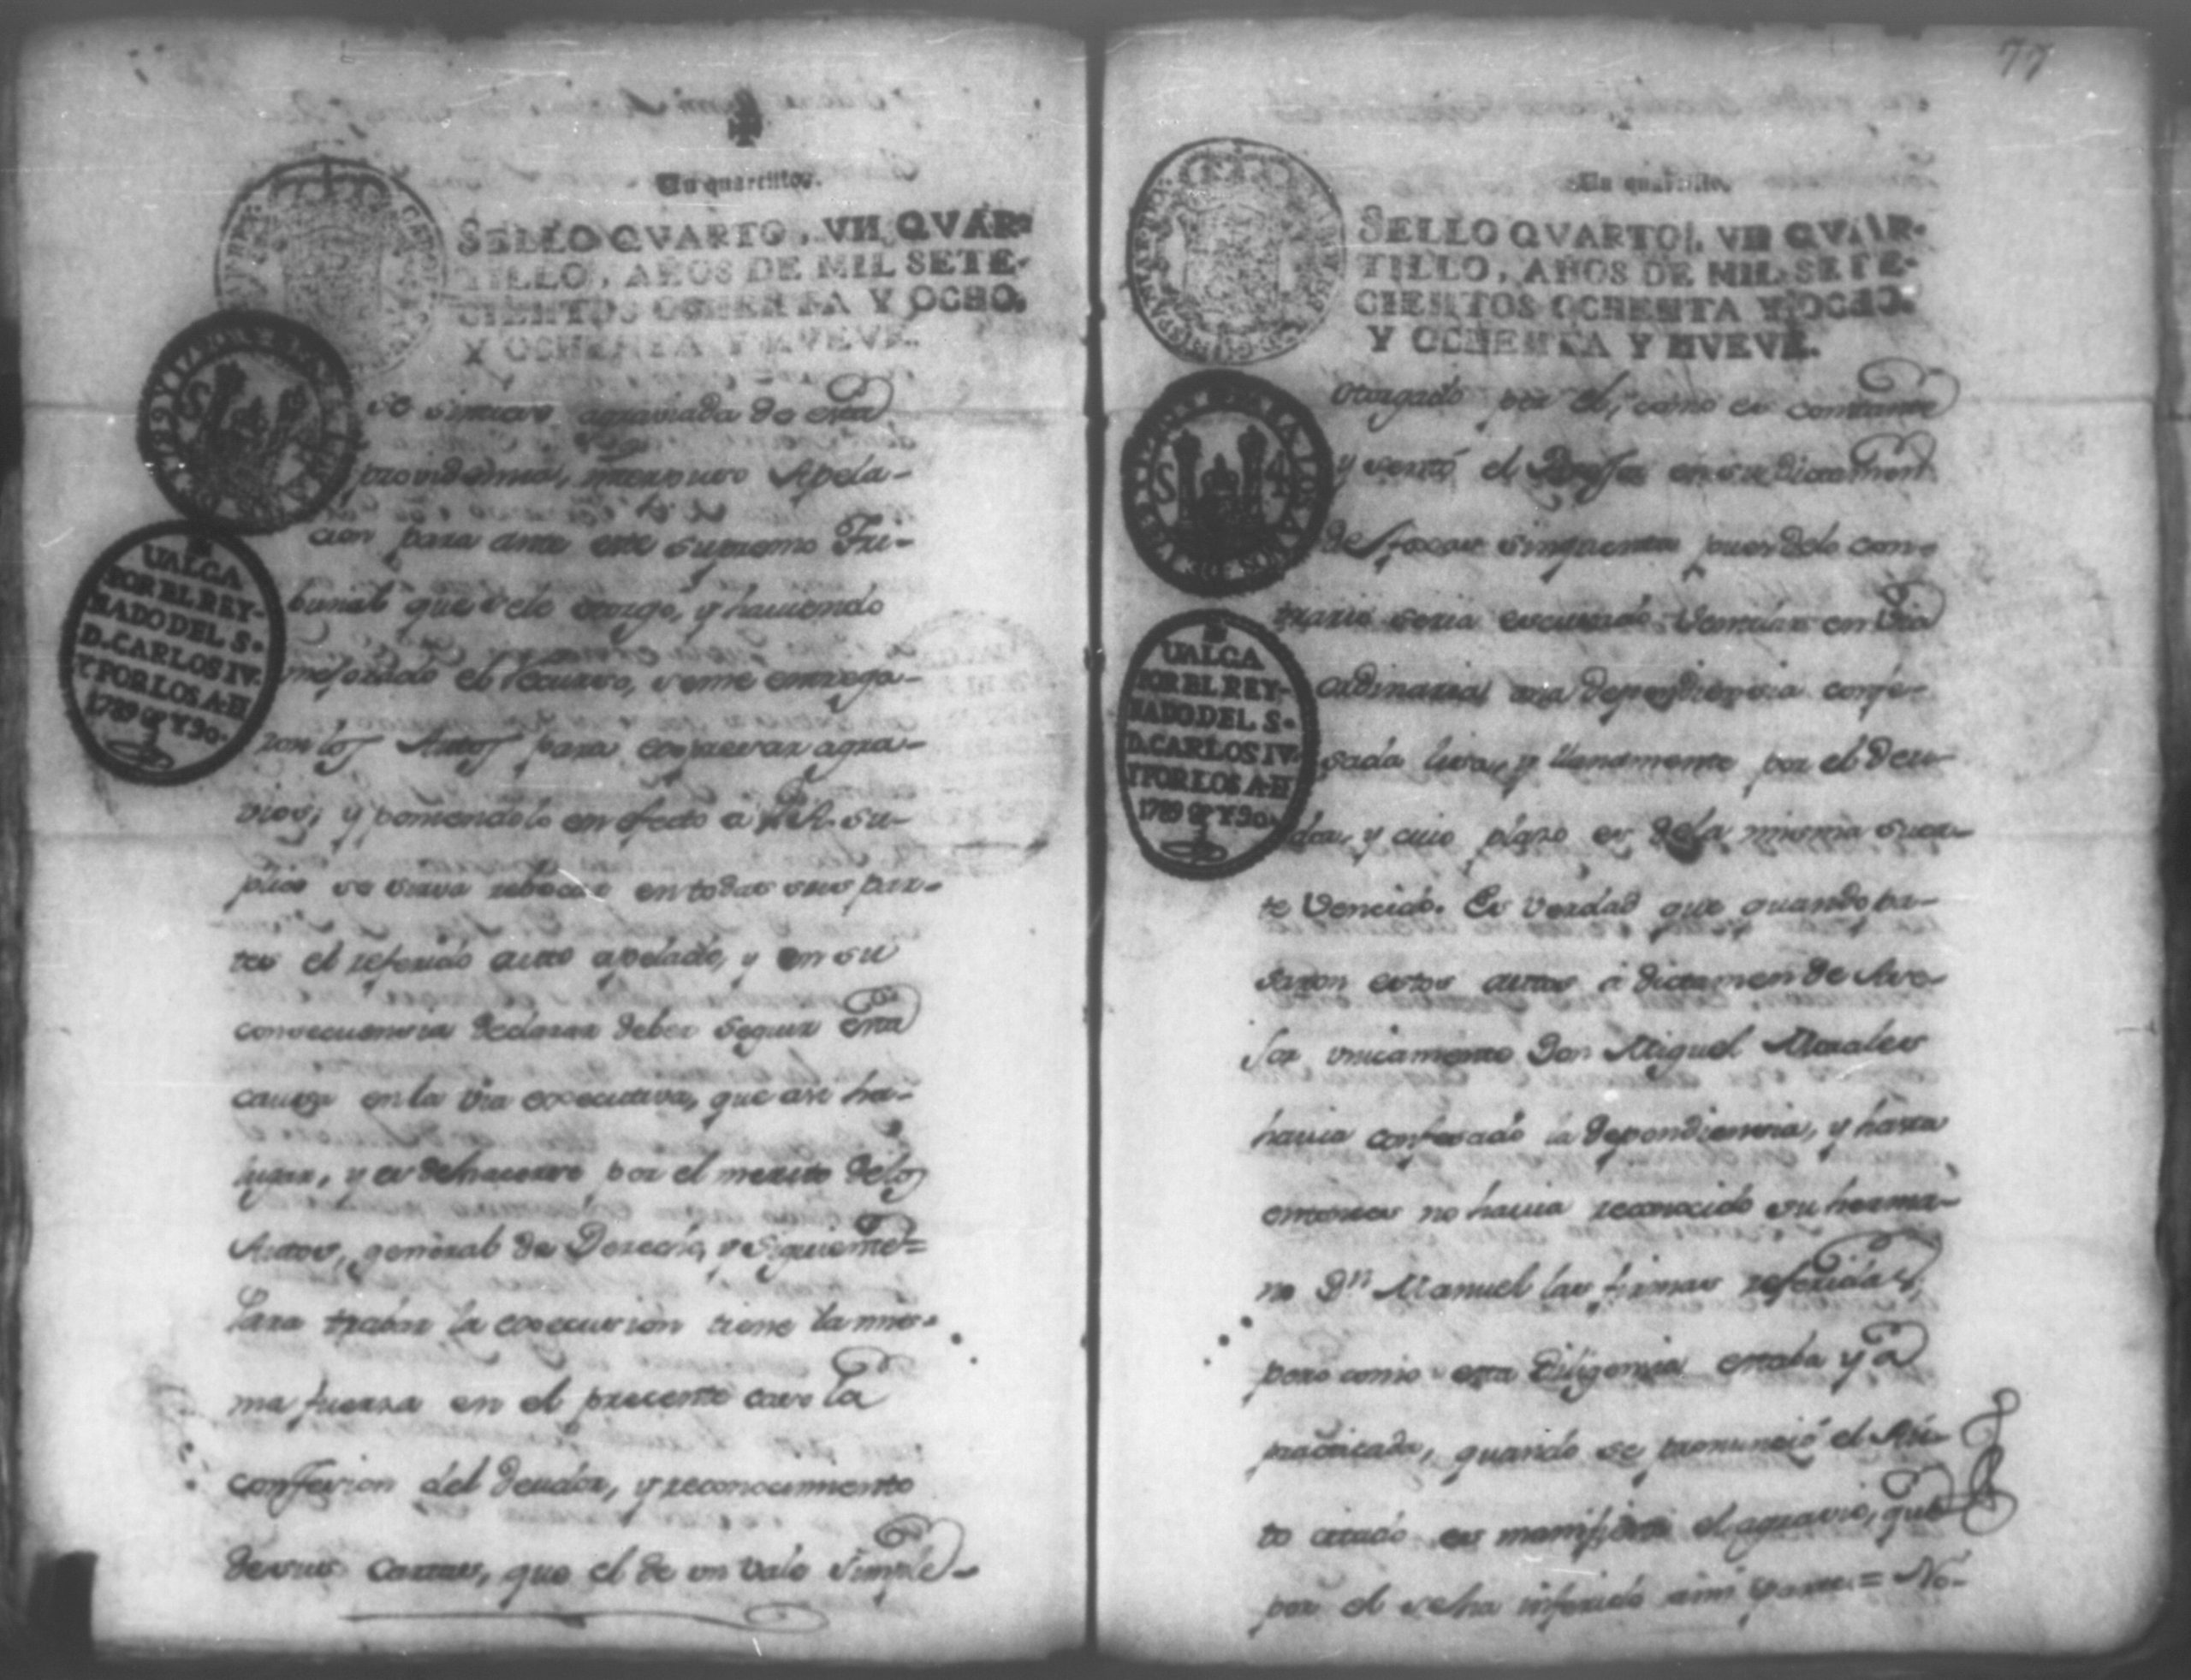 77
Un quartillo.
SELLO QVARTO, VN QVAR-
TILLO, AÑOS DE MIL SETE-
CIENTOS OCHENTA Y OCHO.
Y OCHENTA Y NVEVE.
UALGA
POR EL REY-
NADO DEL S.
D. CARLOS IV.
Y POR LOS A-H
1789 @ Y 90.
se sintiese agraviada de esta
providencia, interpuso Apela-
cion para ante este supremo Tri-
bunal que se le otorgó, y haviendo
mejorado el recurso, se me entrega-
ron los Autos para expresar agra-
vios, y poniendolo en efecto a V.A. su-
plico se sirva rebocar en todas sus par-
tes el referido auto apelado, y en su
consecuencia declarar deber seguir esta
causa en la via executiva, que asi ha
lugar, y es de hacerse por el merito de los
Autos, general de Derecho, y siguiente=
Para trabar la execusion tiene la mis-
ma fuerza en el precente caso la
confesion del deudor, y reconocimiento
de sus cartas, que el de un vale simple-
Un quartillo.
SELLO QVARTO, VN QVAR-
TILLO, AÑOS DE MIL SETE-
CIENTOS OCHENTA Y OCHO.
Y OCHENTA Y NVEVE.
S 4
UALGA
POR EL REY-
NADO DEL S.
D. CARLOS IV.
Y POR LOS A-H
1789 @ Y 90.
otorgado por el, como es constante
y sentó el Asesor en su dictamen
de foxas sinquenta pues de lo con-
trario seria escusado ventilar en via
ordinaria una dependiensia confe-
sada lisa, y llanamente por el deu-
dor, y cuio plazo es de la misma suer-
te vencido. Es verdad que quando pa-
saron estos autos á dictamen de Ase-
sor unicamente Don Miguel Morales
havia confesado la dependiensia, y hasta
entonces no havia reconocido su herma-
no Dn Manuel las firmas referidas,
pero como esta diligencia estaba ya
practicada, quando se pronunció el Au-
to citado es manifiesto el agravio, que
por el se ha inferido a mi parte.= No-